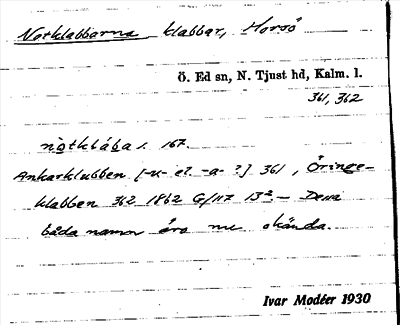 Notklabbarna klabbar, Horsö
Ö. Ed sn, N. Tjust hd, Kalm. l.
361, 362
nòtklába s. 167.
Ankarklubben [-u- el. -a- ?] 361, Öringe-
klabben 362 1862 G/117 13² — Dessa
båda namn äro nu okända.
Ivar Modéer 1930